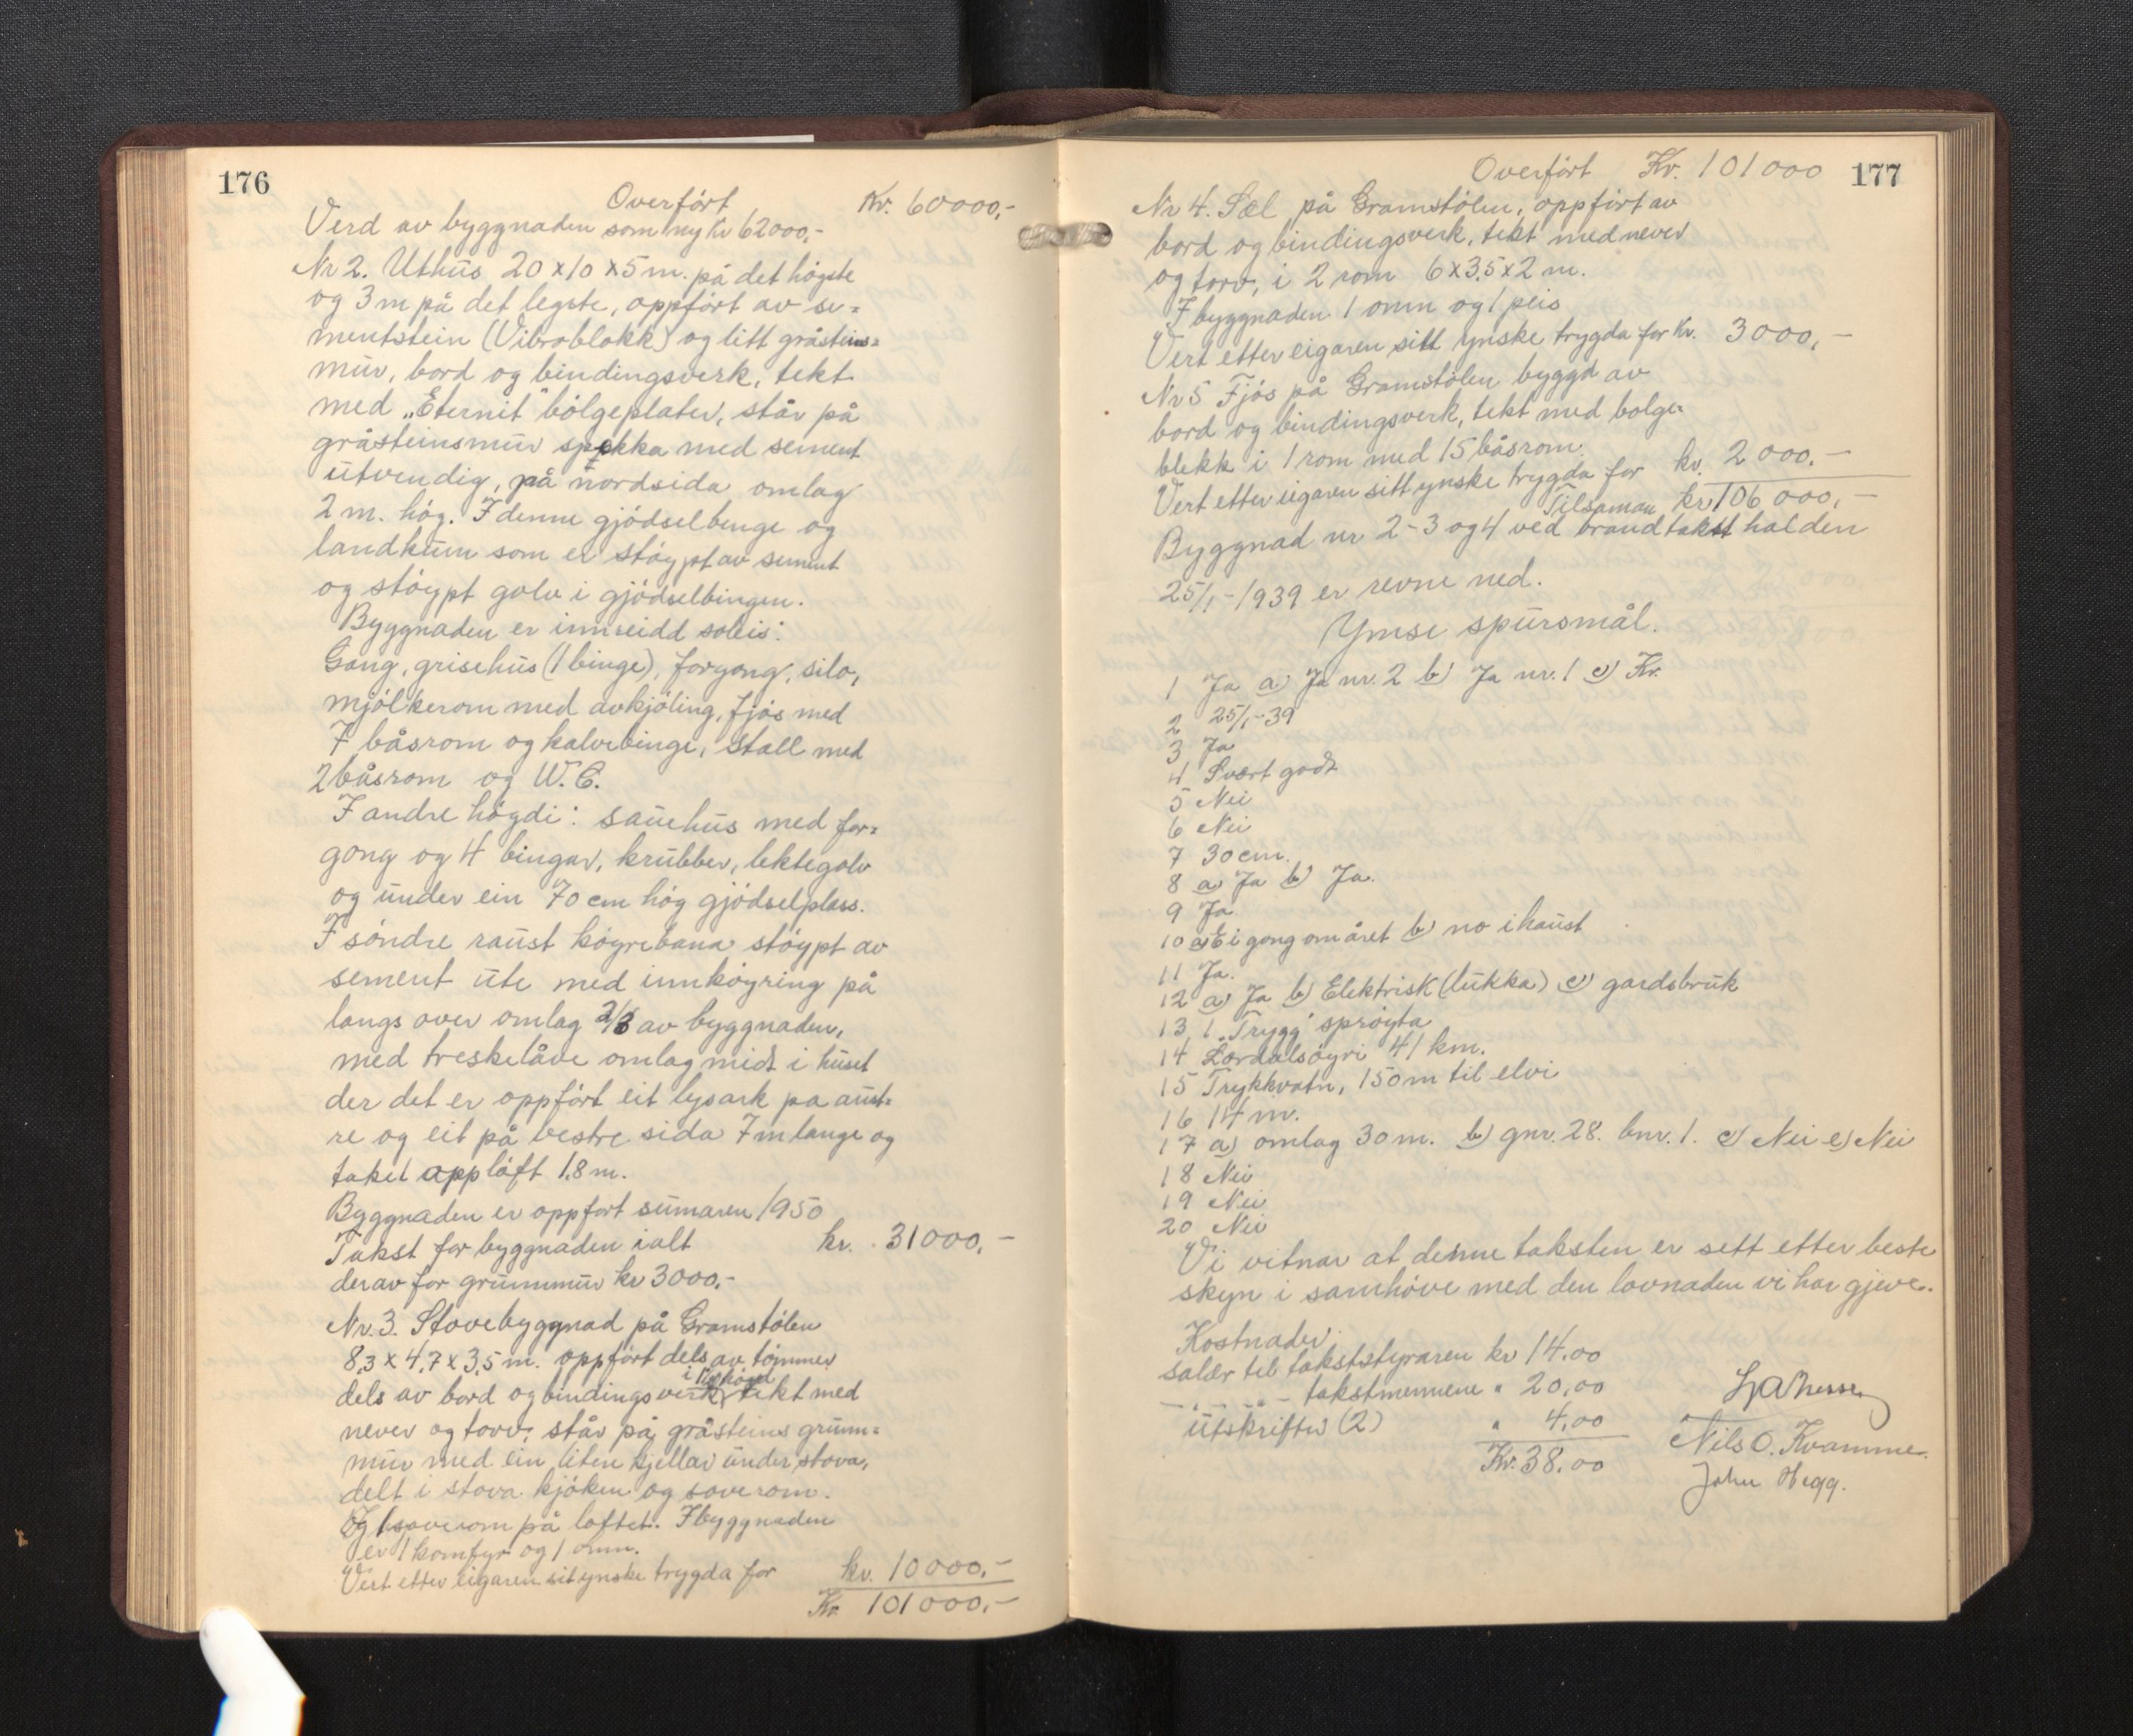 176
Overført Kr. 60000,-
Verd av byggnaden som ny Kr 62000,-
Nr 2. Uthus 20 x 10 x 5 m. på det høgste
og 3 m på det legste, oppført av se=
mentstein (Vibroblokk) og litt gråsteins=
mur, bord og bindingsverk, tekt
med „Eternit" bölgeplater, står på
gråsteinsmur spekka med sement
utvendig, på nordsida omlag
2 m. høg. I denne gjødselbinge og
landkum som er støypt av sement
og støypt golv i gjødselbingen.
Byggnaden er innreidd soleis:
Gang, grisehus (1 binge), forgang, silo,
mjølkerom med avkjøling, fjøs med
7 båsrom og kalvebinge, stall med
2 båsrom og W.C.
I andre høgdi: sauehus med for=
gong og 4 bingar, krubber, lektegolv
og under ein 70 cm høg gjødselplass.
I søndre raust køyrebana støypt av
sement ute med innkøyring på
langs over omlag 2/3 av byggnaden,
med treskelåve omlag midt i huset
der det er oppført eit lysark pa aust=
re og eit på vestre sida 7 m lange og
taket oppløft 1,8 m.
Byggnaden er oppført sumaren 1950
Takst for byggnaden ialt kr. 31000,-
derav for grunnmur kr 3000,-
Nr. 3. Stovebyggnad på Gramstølen
8,3 x 4,7 x 3,5 m. oppført dels av tømmer
i 1½ høgd
dels av bord og bindingsverk, tekt med
never og torv, står på gråsteins grunn=
mur med ein liten kjellar under stova,
delt i stova kjøken og soverom.
Og 1 soverom på loftet. I byggnaden
er 1 komfyr og 1 omn.
Vert etter eigaren sit ynske trygda for kr. 10000,-
Kr 101000,-
177
Overført Kr. 101000
Nr 4. Sel på Gramstølen, oppført av
bord og bindingsverk, tekt med never
og torv, i 2 rom 6 x 3,5 x 2 m.
I byggnaden 1 omn og 1 peis
Vert etter eigaren sitt ynske trygda for Kr. 3000,-
Nr 5 Fjøs på Gramstølen byggd av
bord og bindingsverk, tekt med bølge=
blekk i 1 rom med 15 båsrom
Vert etter eigaren sitt ynske trygda for kr. 2000,-
Tilsaman kr 106000,-
Byggnad nr 2-3 og 4 ved brandtakst halden
25/1-1939 er revne ned.
Ymse spursmål.
1 Ja a) Ja nr. 2 b) Ja nr. 1 c) Kr.
2 25/1-39
3 Ja
4 Svært godt
5 Nei
6 Nei
7 30 cm.
8 a) Ja b) Ja.
9 Ja
10 a) Ei gong om året b) no i haust
11 Ja.
12 a) Ja b) Elektrisk (lukka) c) gardsbruk
13 1 „Trygg" sprøyta
14 Lærdalsøyri 41 km.
15 Trykkvatn, 150 m til elvi
16 14 m.
17 a) omlag 30 m. b) gnr. 28. bnr. 1. c) Nei e) Nei
18 Nei
19 Nei
20 Nei
Vi vitnar at denne taksten er sett etter beste
skyn i samhøve med den lovnaden vi har gjeve.
Kostnader:
salær til takststyraren kr 14,00
- „ - - „ - takstmennene " 20,00
Utskrifter (2) " 4,00
Kr. 38,00
Nils O. Kvamme.
John Hegg.